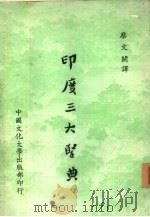 蔡文開譯
印度三大聖典
中國文化大學出版部印行